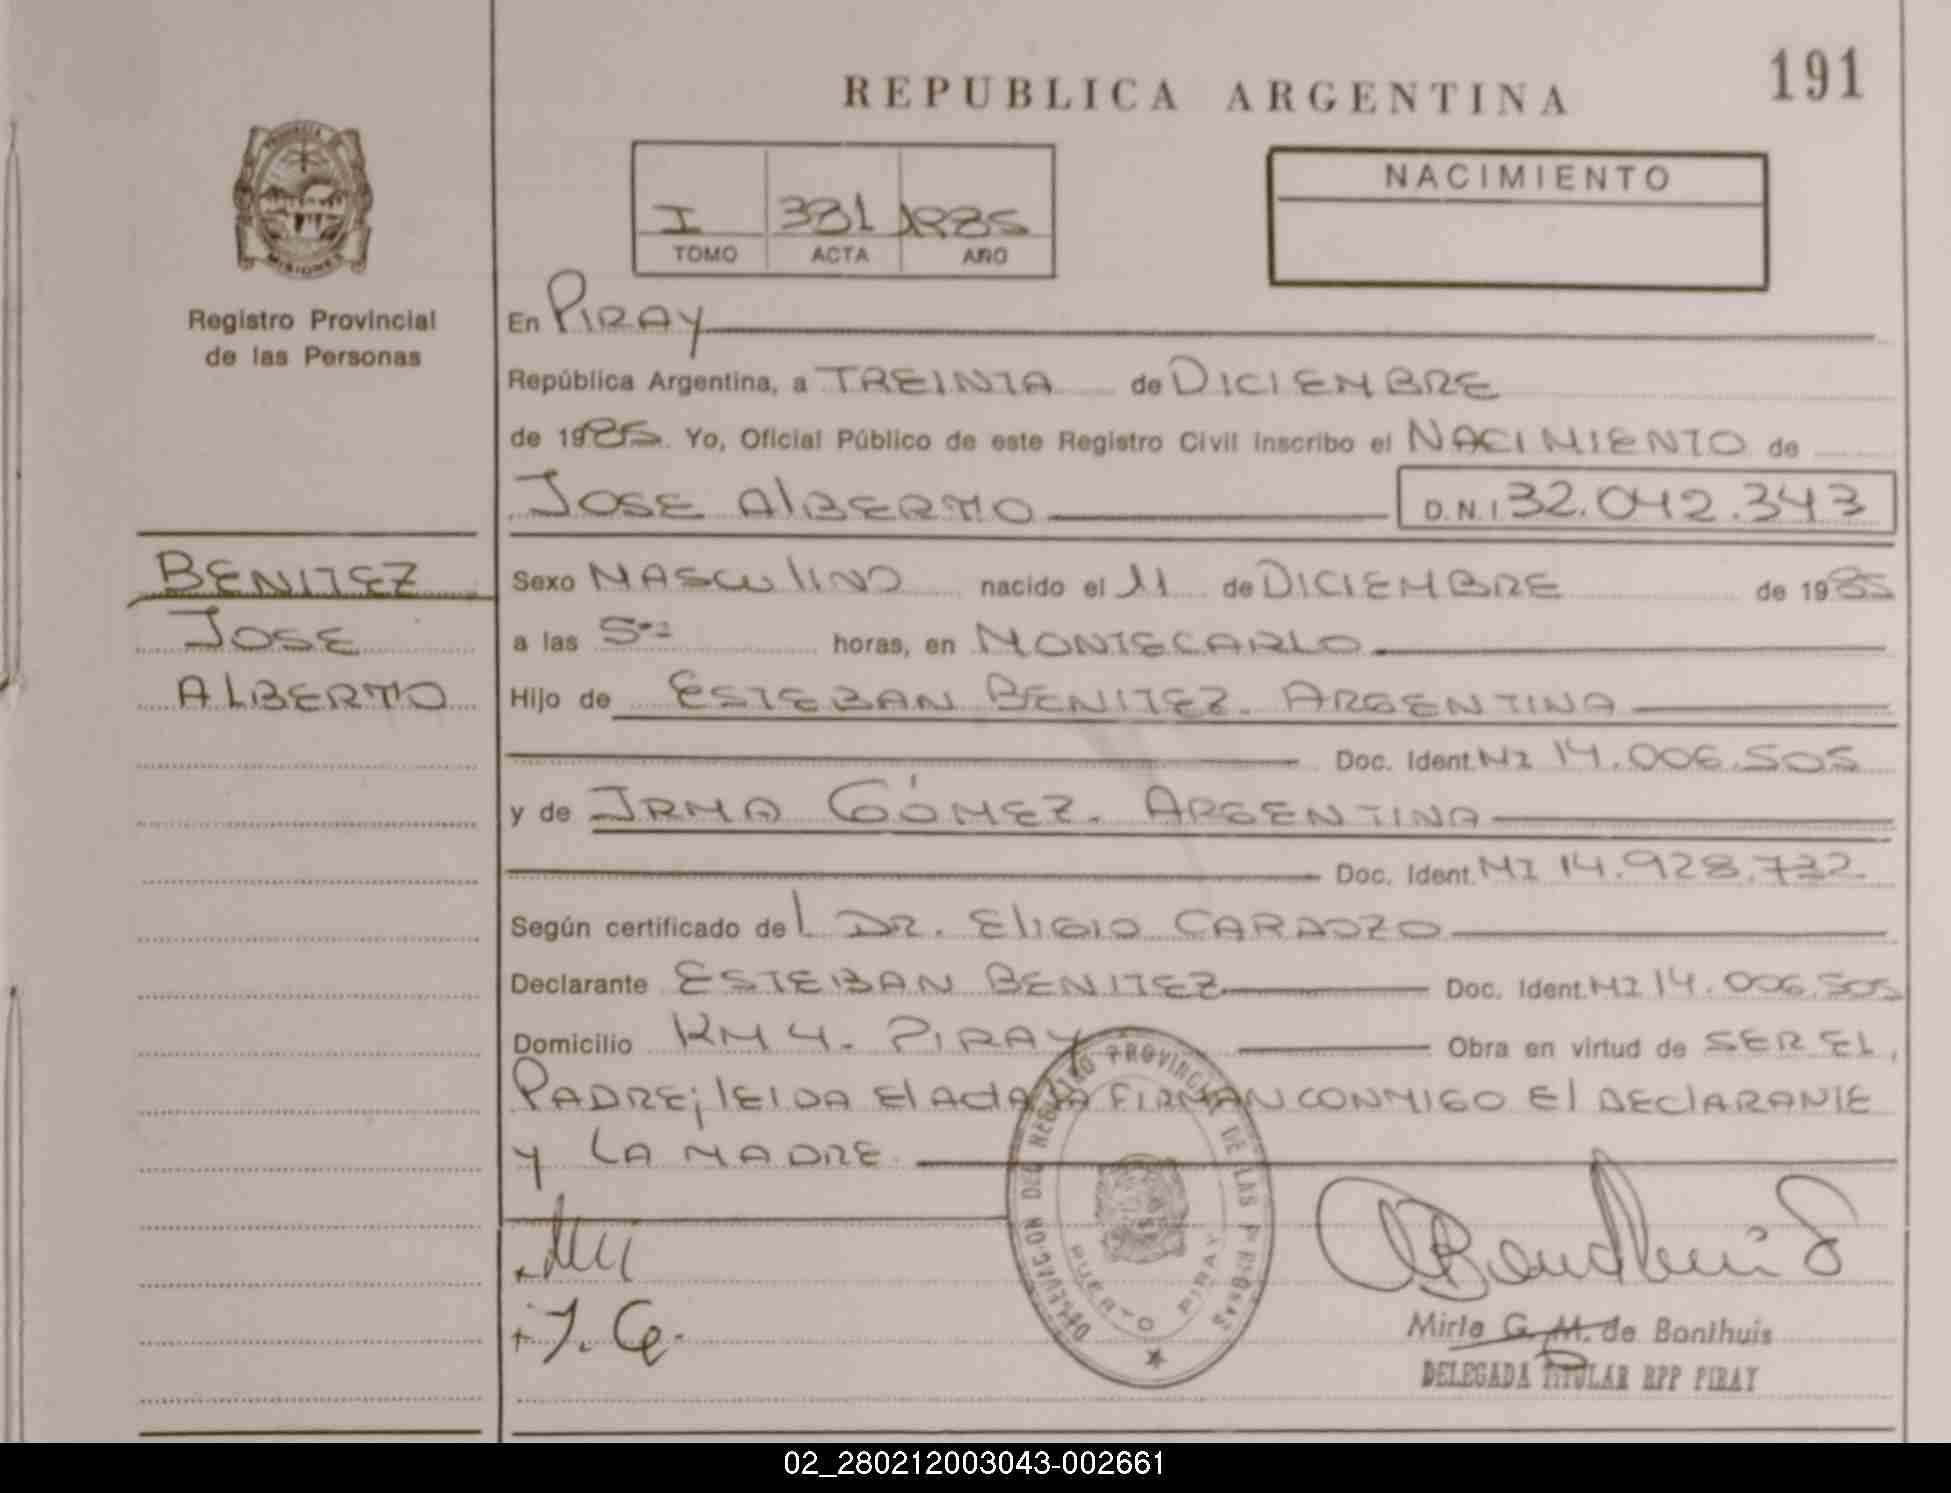 191
REPUBLICA ARGENTINA
PROVINCIA
MISIONES
Registro Provincial
de las Personas
I 331 1985
TOMO ACTA AÑO
NACIMIENTO
En PIRAY
República Argentina, a TREINTA de DICIEMBRE
de 1985. Yo, Oficial Público de este Registro Civil inscribo el NACIMIENTO de
JOSE AlBERTO D.N.I. 32.042.343
BENITEZ
JOSE
ALBERTO
Sexo MASCulINO nacido el 11 de DICIEMBRE de 1985
a las 5 horas, en MONTECARLO
Hijo de ESTEBAN BENITEZ. ARGENTINA
Doc. Ident. MI 14.006.505
y de IRMA GÓMEZ. ARGENTINA
Doc. Ident. MI 14.928.732
Según certificado del DR. EliGIO CARDOZO
Declarante ESTEBAN BENITEZ Doc. Ident. MI 14.006.505
Domicilio KM 4. PIRAY Obra en virtud de SER EL
PADRE; lEIDA El ActA lA FIRMAN CONMIGO El DEClARANTE
y LA MADRE.
I. G.
DEL REGISTRO PROVINCIAL DE LAS PERSONAS
PUERTO PIRAY
Mirta G. M. de Bonthuis
DELEGADA TITULAR RPP PIRAY
02_280212003043-002661